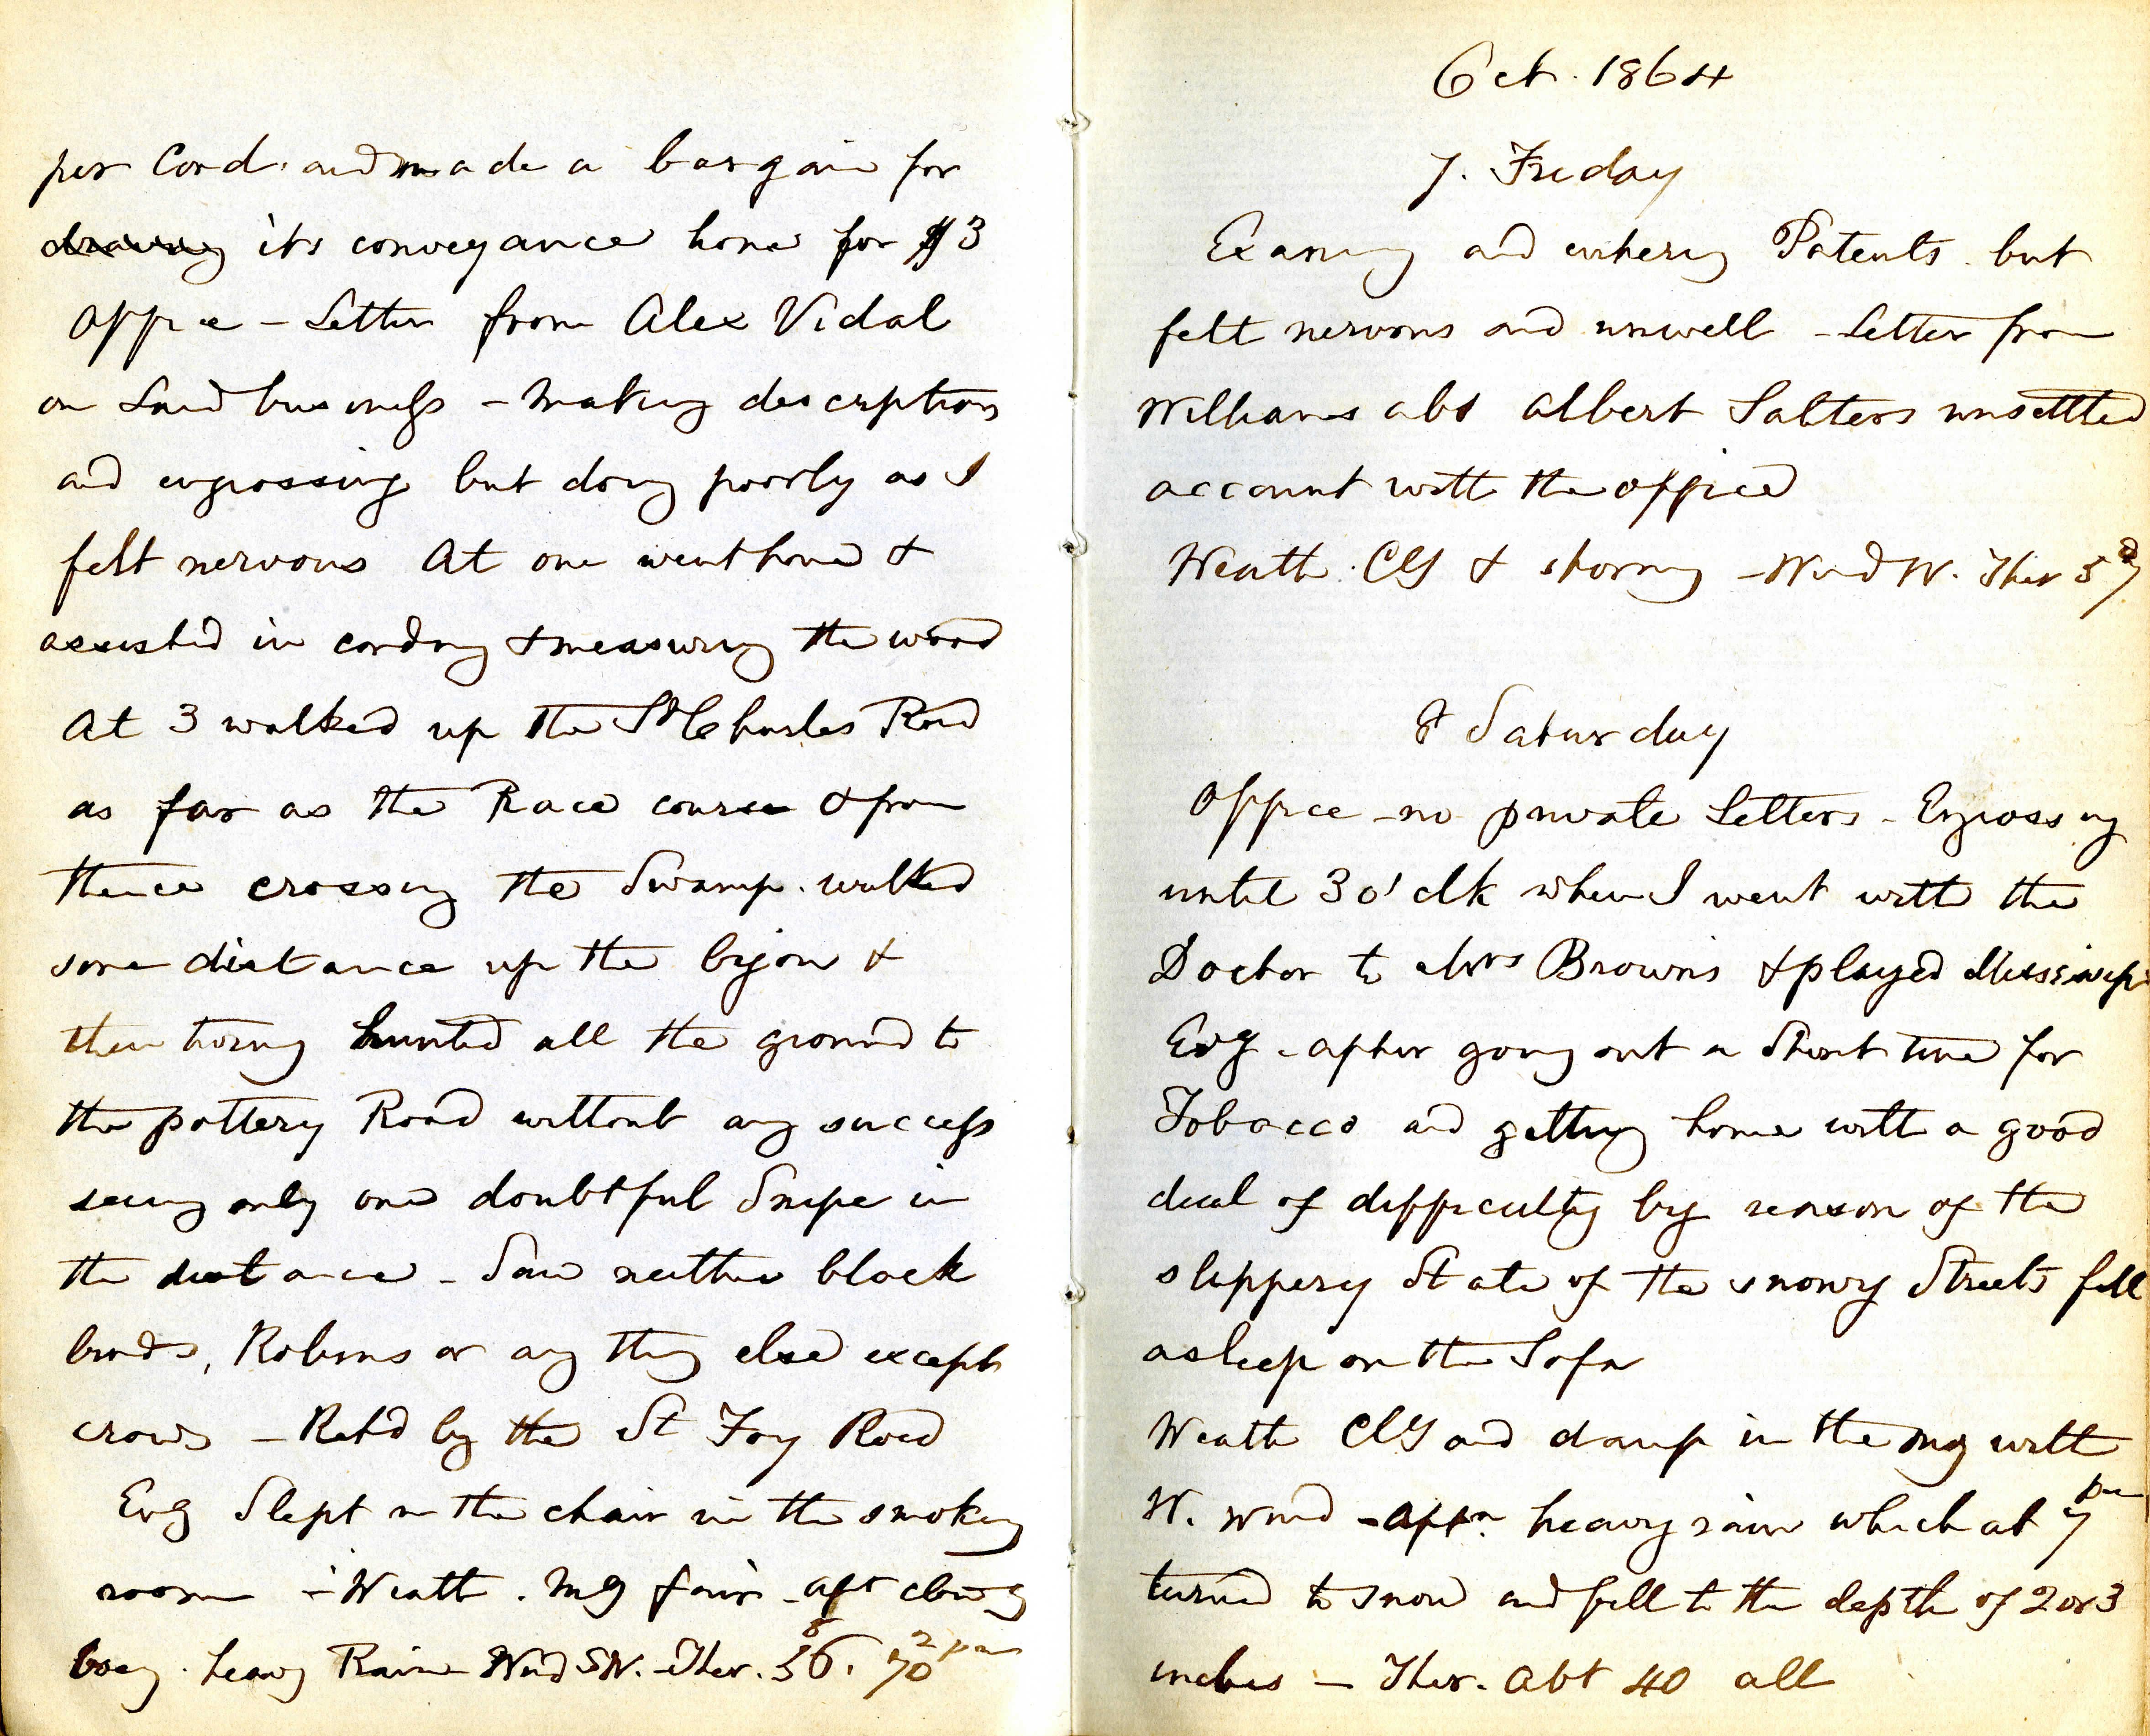 per Cord. and made a bargain for
drawing its conveyance home for $3
Office - Letter from Alex Vidal
on Land business - Making descriptions
and engrossing but doing poorly as I
felt nervous At one went home &
assisted in cording & measuring the wood
At 3 walked up the St Charles Road
as far as the Race course & from
thence crossing the Swamp. walked
some distance up the bijou &
then turng hunted all the ground to
the pottery Road without any success
seeing only one doubtful Snipe in
the distance - Saw neither black
birds, Robins or any thing else except
crows - Retd by the St Foy Road
Evg Slept in the chair in the smoking
room - Weath. Mg fair - aft cloudy
heavy Rain Wind SW. - Ther. 8 56. 2 pm 70
Oct. 1864
7. Friday
Examg and entering Patents. but
felt nervous and unwell - Letter from
Williams abt Albert Salters unsettled
account with the office
Weath. Cly & stormy - Wind W. Ther 57
8 Saturday
Office - no private Letters - Engrossing
until 3 o'clk when I went with the
Doctor to Mrs Browns & played Mississippi
Evg - after going out a Short time for
Tobacco and getting home with a good
deal of difficulty by reason of the
slippery State of the snowy Streets fell
asleep on the Sofa
Weath Cly and damp in the mg with
W. wind - aftn. heavy rain which at 7 pm
turned to snow and fell to the depth of 2 or 3
inches - Ther. Abt 40 all